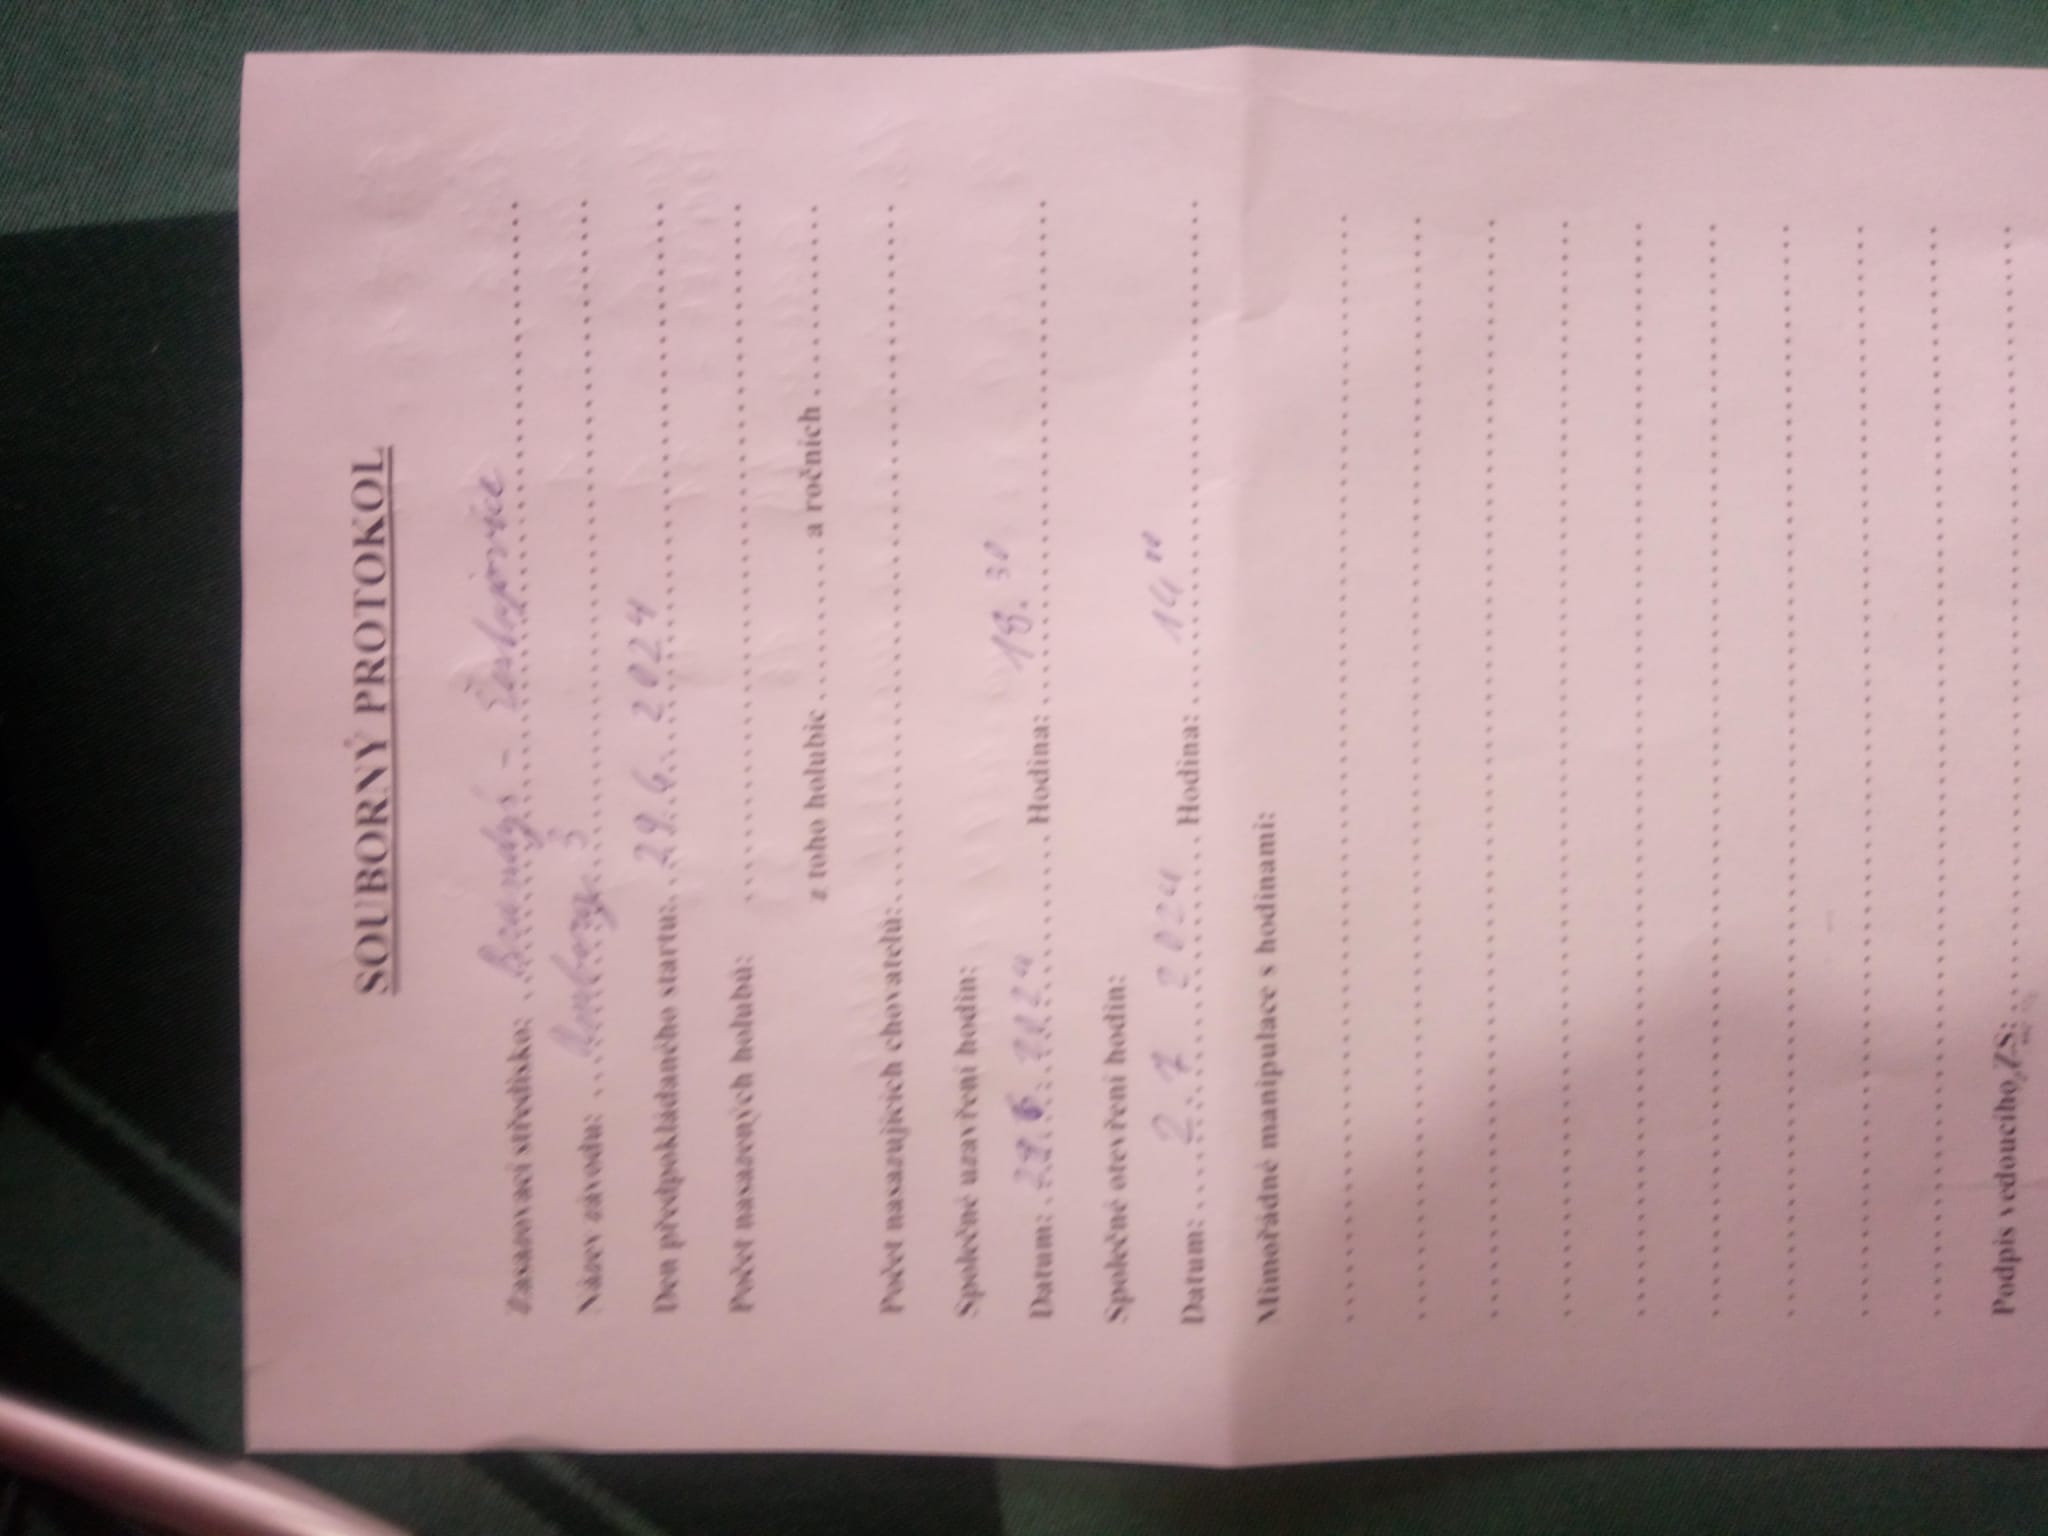 SOUBORNÝ PROTOKOL
Nasazovací středisko: Brandýs - Žabajovice
Název závodu: 3
Den předpokládaného startu: 29.6.2024
Počet nasazených holubů:
z toho holubic a ročních
Počet nasazujících chovatelů:
Společné uzavření hodin:
Datum: 6. 2024 Hodina: 18.30
Společné otevření hodin:
Datum: 2.7 2024 Hodina: 14 00
Mimořádné manipulace s hodinami:
Podpis vedoucího ZS: